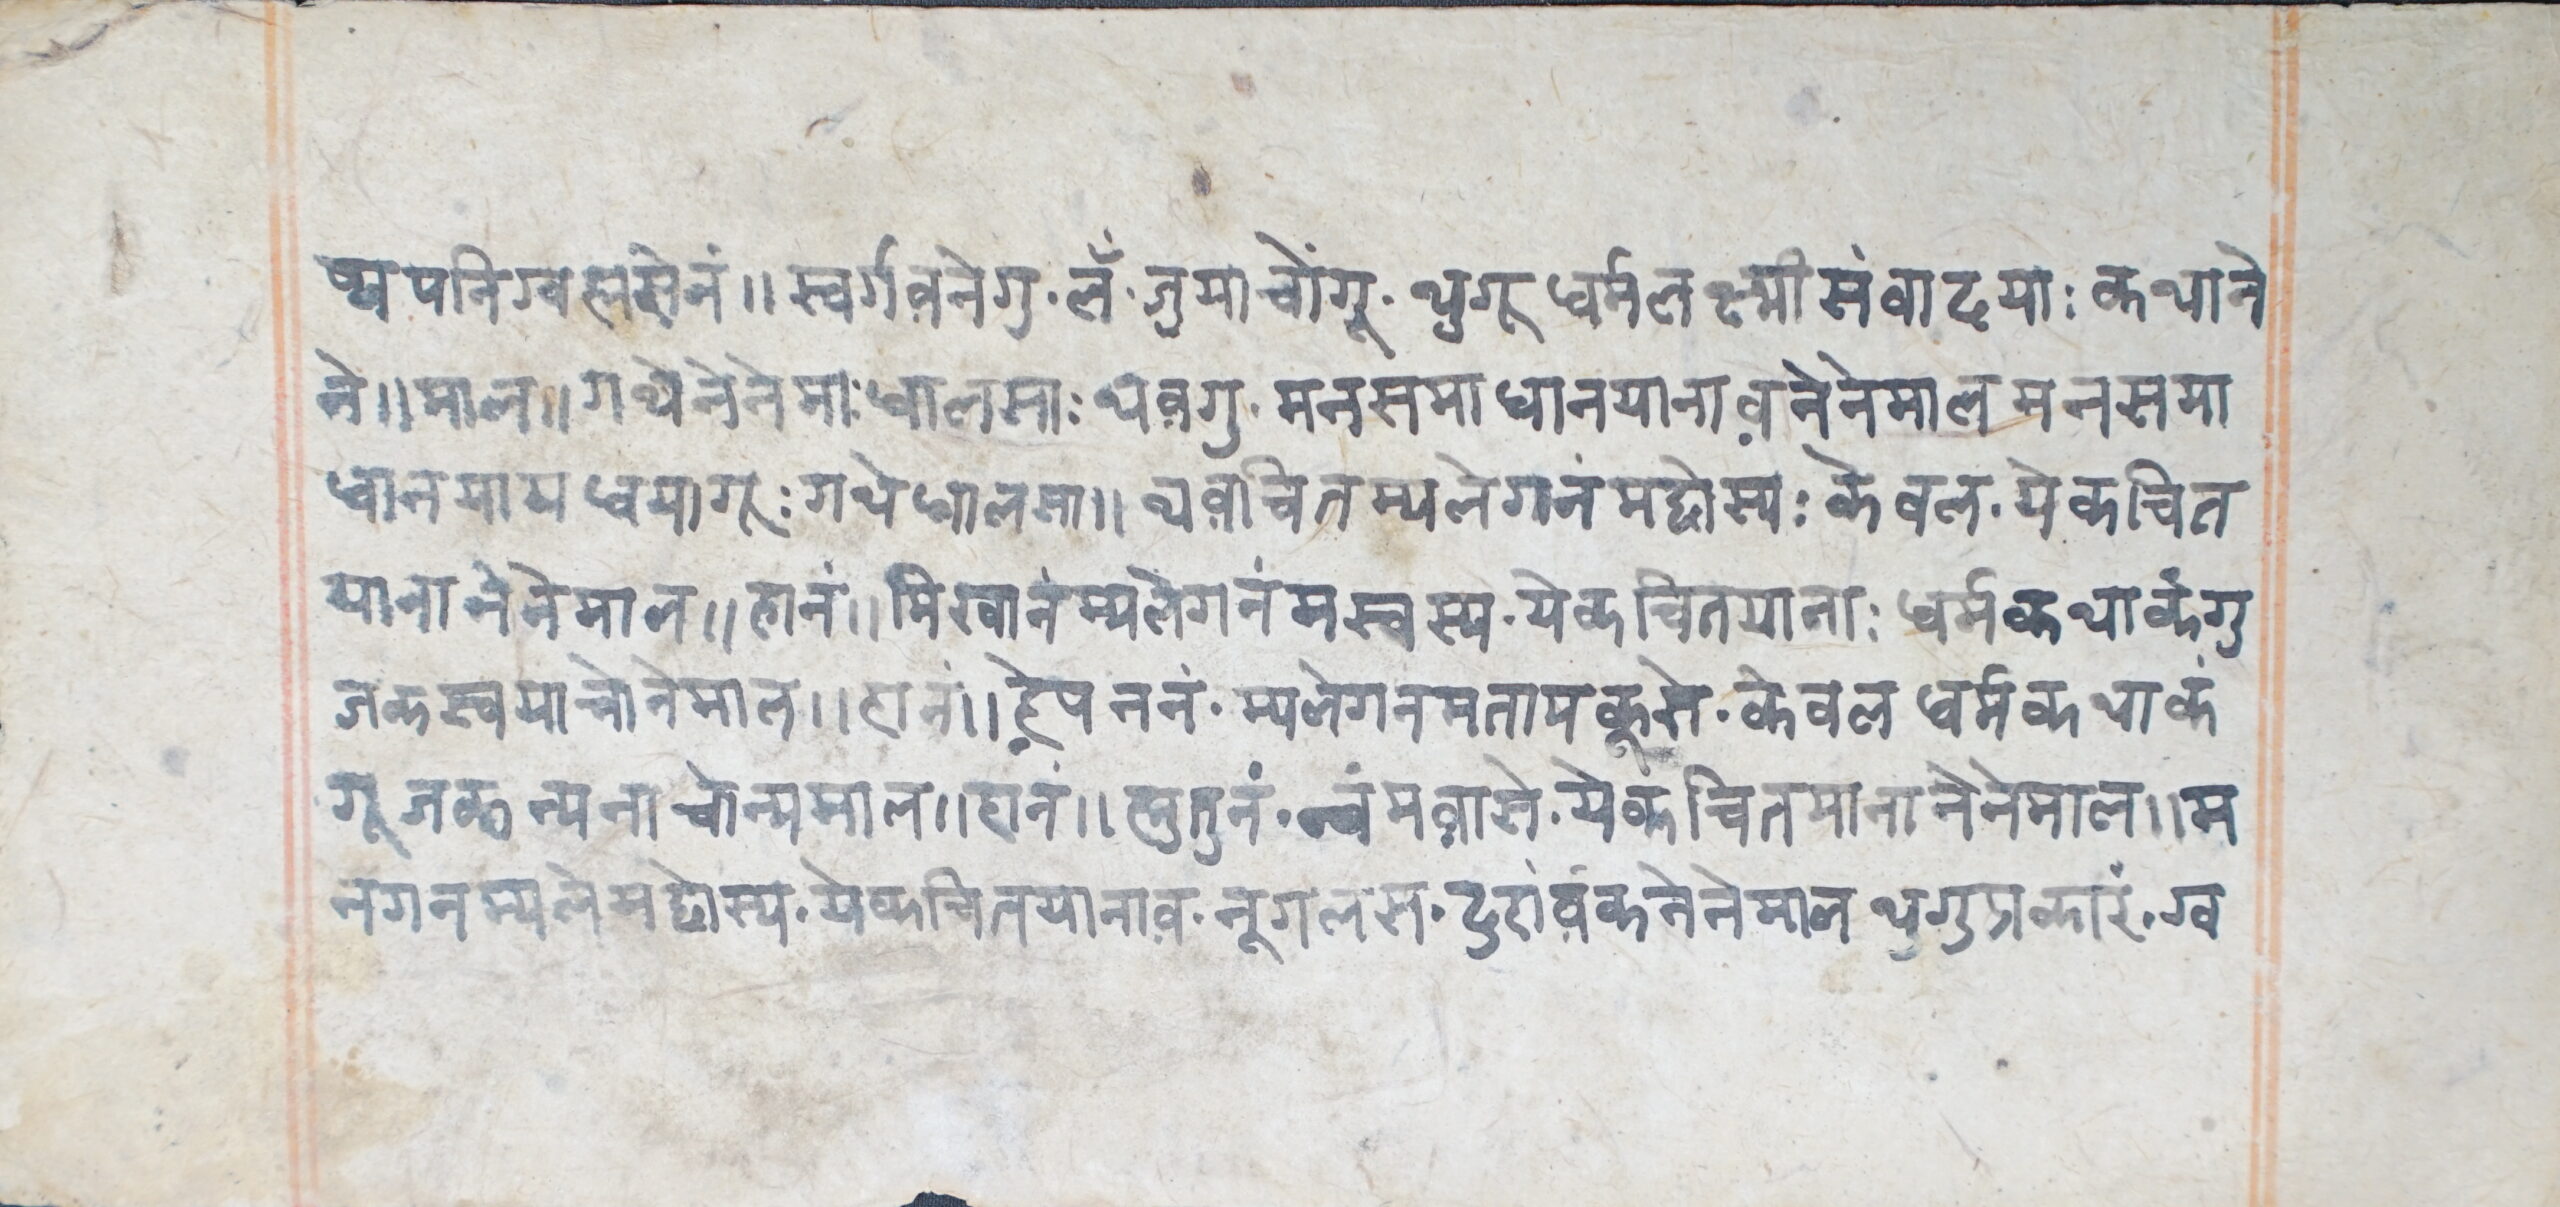 ष्यपनिग्वह्मसेनं॥ स्वर्गवनेगु·लँ·जुयाचोंगू·थुगू धर्मलक्ष्मी संवादया: कथाने
ने॥माल॥ गथेनेनेमा:धालसा: थवगु·मनसमाधानयानाव नेनेमाल मनसमा
धानयाय धयागू: गथेधालसा॥ थवचित म्यलेगनं मछोस्य: केवल·येकचित
याना नेनेमाल॥ हानं॥ मिखानं म्यलेगनं मस्वस्य·येकचितयाना: धर्मकथाकंगु
जकस्वयाचोनेमाल॥ हानं॥ ह्रेपननं·म्यलेगनमतायकूसे·केवल धर्मकथाकं
गू जक न्यना चोन्यमाल॥ हानं॥ ह्मुतुनं·न्वंमवासे·येकचितयाना नेनेमाल॥ म
नगनम्यलेमछोस्य·येकचितयानाव·नूगलस·दुहांवंकनेनेमाल थुगुप्रकारं·ग्व